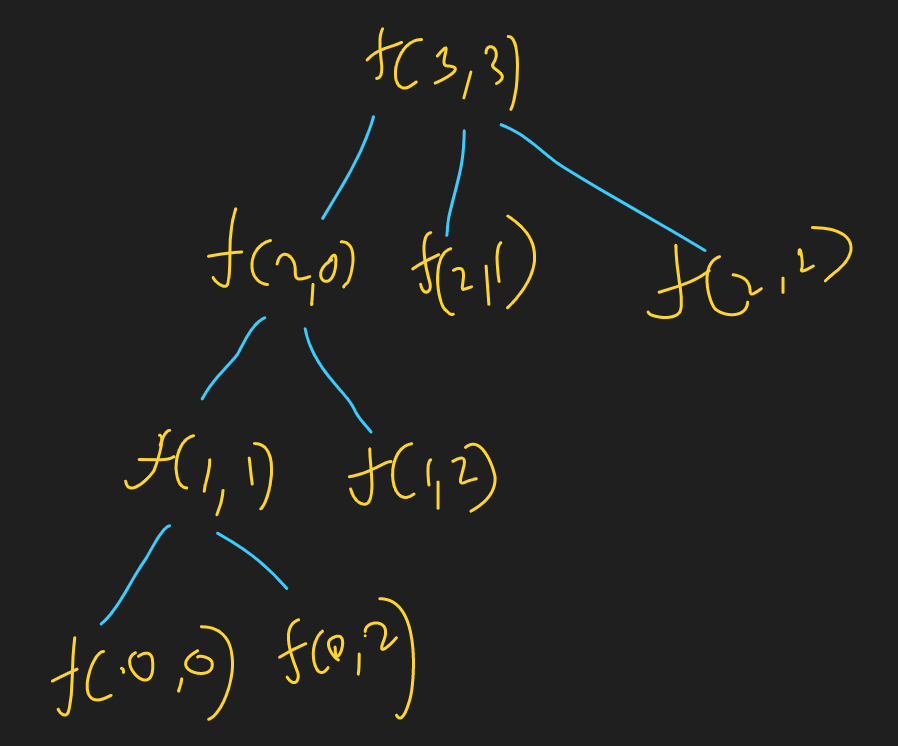 f(3,3)
f(2,0) f(2,1) f(2,2)
f(1,1) f(1,2)
f(0,0) f(0,2)